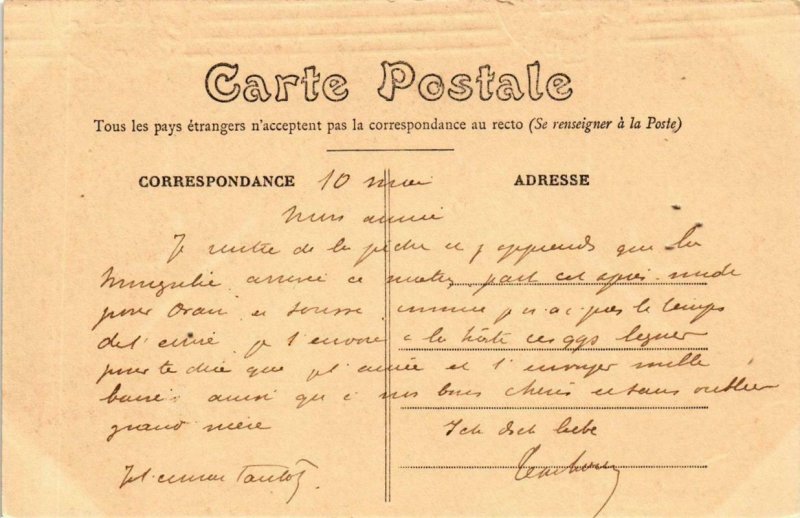 Carte Postale
Tous les pays étrangers n'acceptent pas la correspondance au recto (Se renseigner à la Poste)
CORRESPONDANCE 10 mai ADRESSE
Mon aimée
Je rentre de la pêche et j'apprends que la
arrivé ce matin part cet après midi
pour Oran et Sousse comme je n'ai pas le temps
de t'écrire je t'envoie à la hâte ces qqs lignes
pour te dire que je t'aime et t'envoyer mille
baisers ainsi qu'à nos bons chéris et sans oublier
grand mère Ich dich liebe